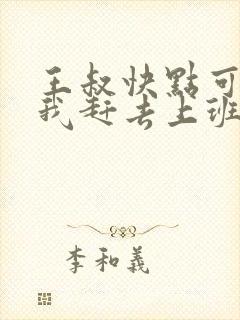 王叔快點可
我赶去上班
李和義